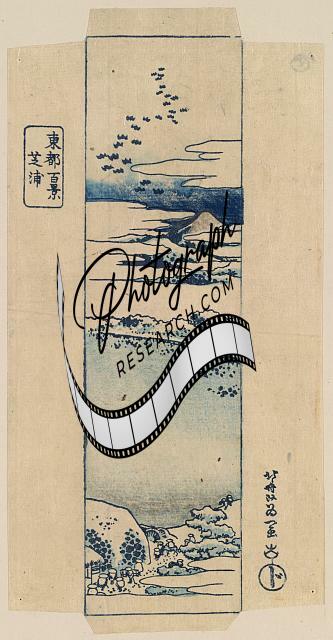 東都百景
芝浦
Photograph
RESEARCH.COM
北斎改為一画